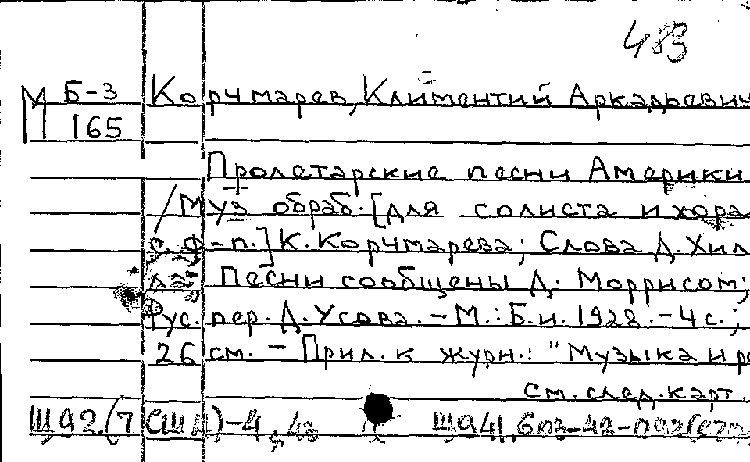 483
М Б-3 Корчмарев, Климентий Аркадьевич
165
Пролетарские песни Америки
/Муз. обраб. [для солиста и хора
с ф-п.] К. Корчмарева; Слова Д. Хил
ла; Песни сообщены Д. Моррисом;
Рус. пер. Д. Усова. - М.: Б.и. 1928. - 4 с.;
26 см. - Прил. к журн.: "Музыка и ре
см. след. карт.
Щ92.(7США)-4